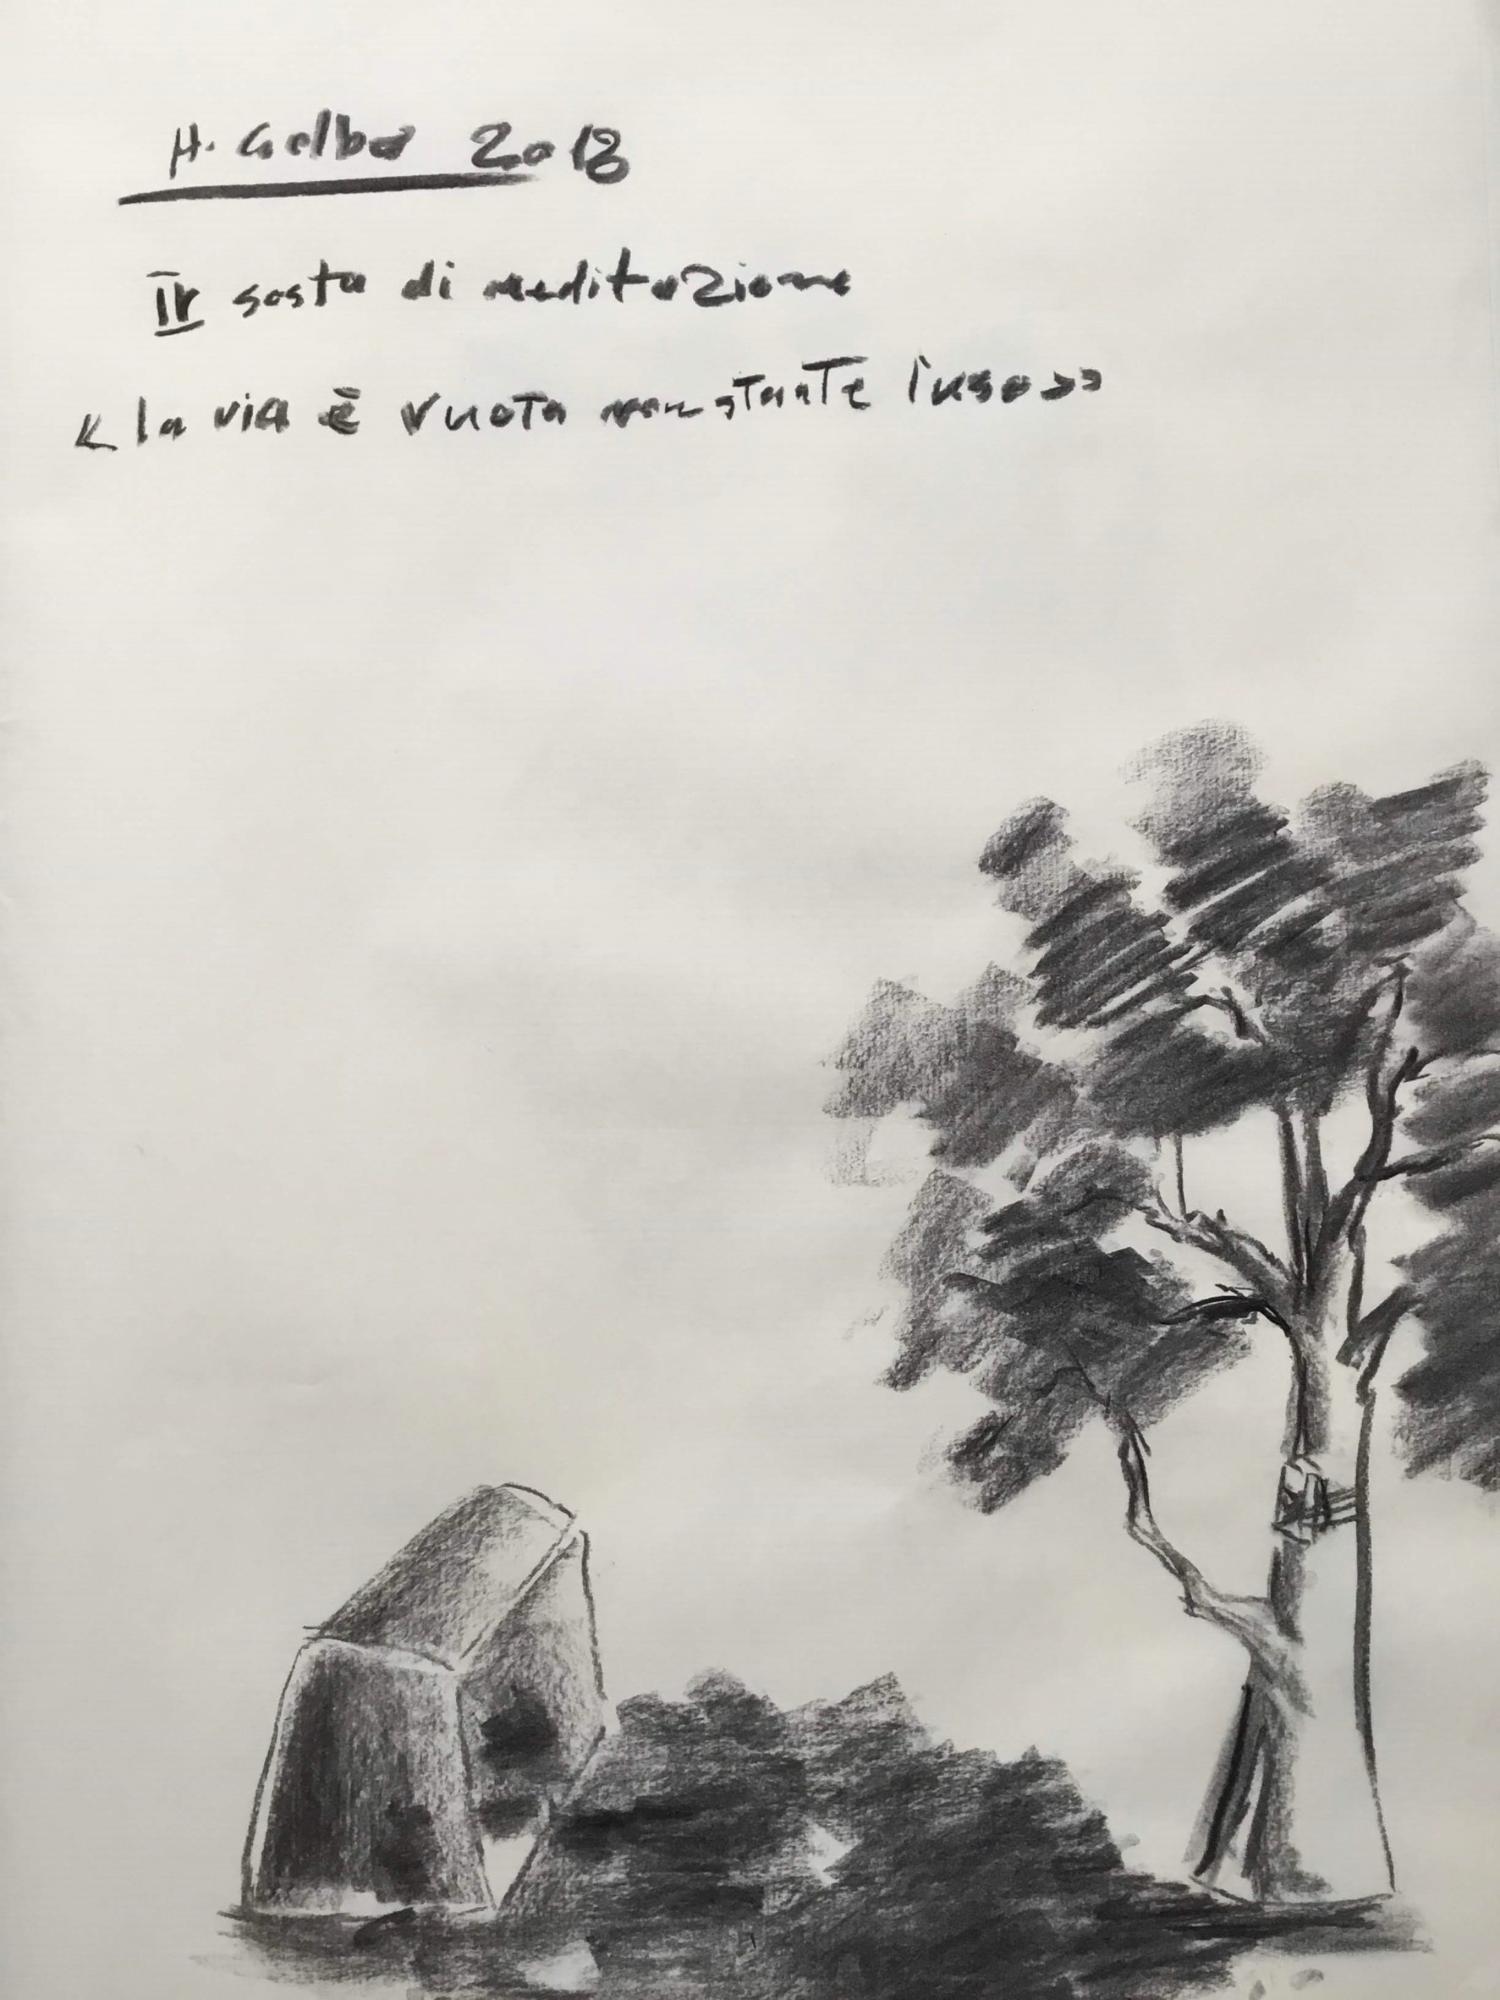 H. Gelba 2018
IV sosta di meditazione
<< la via è vuota nonostante l'uso >>